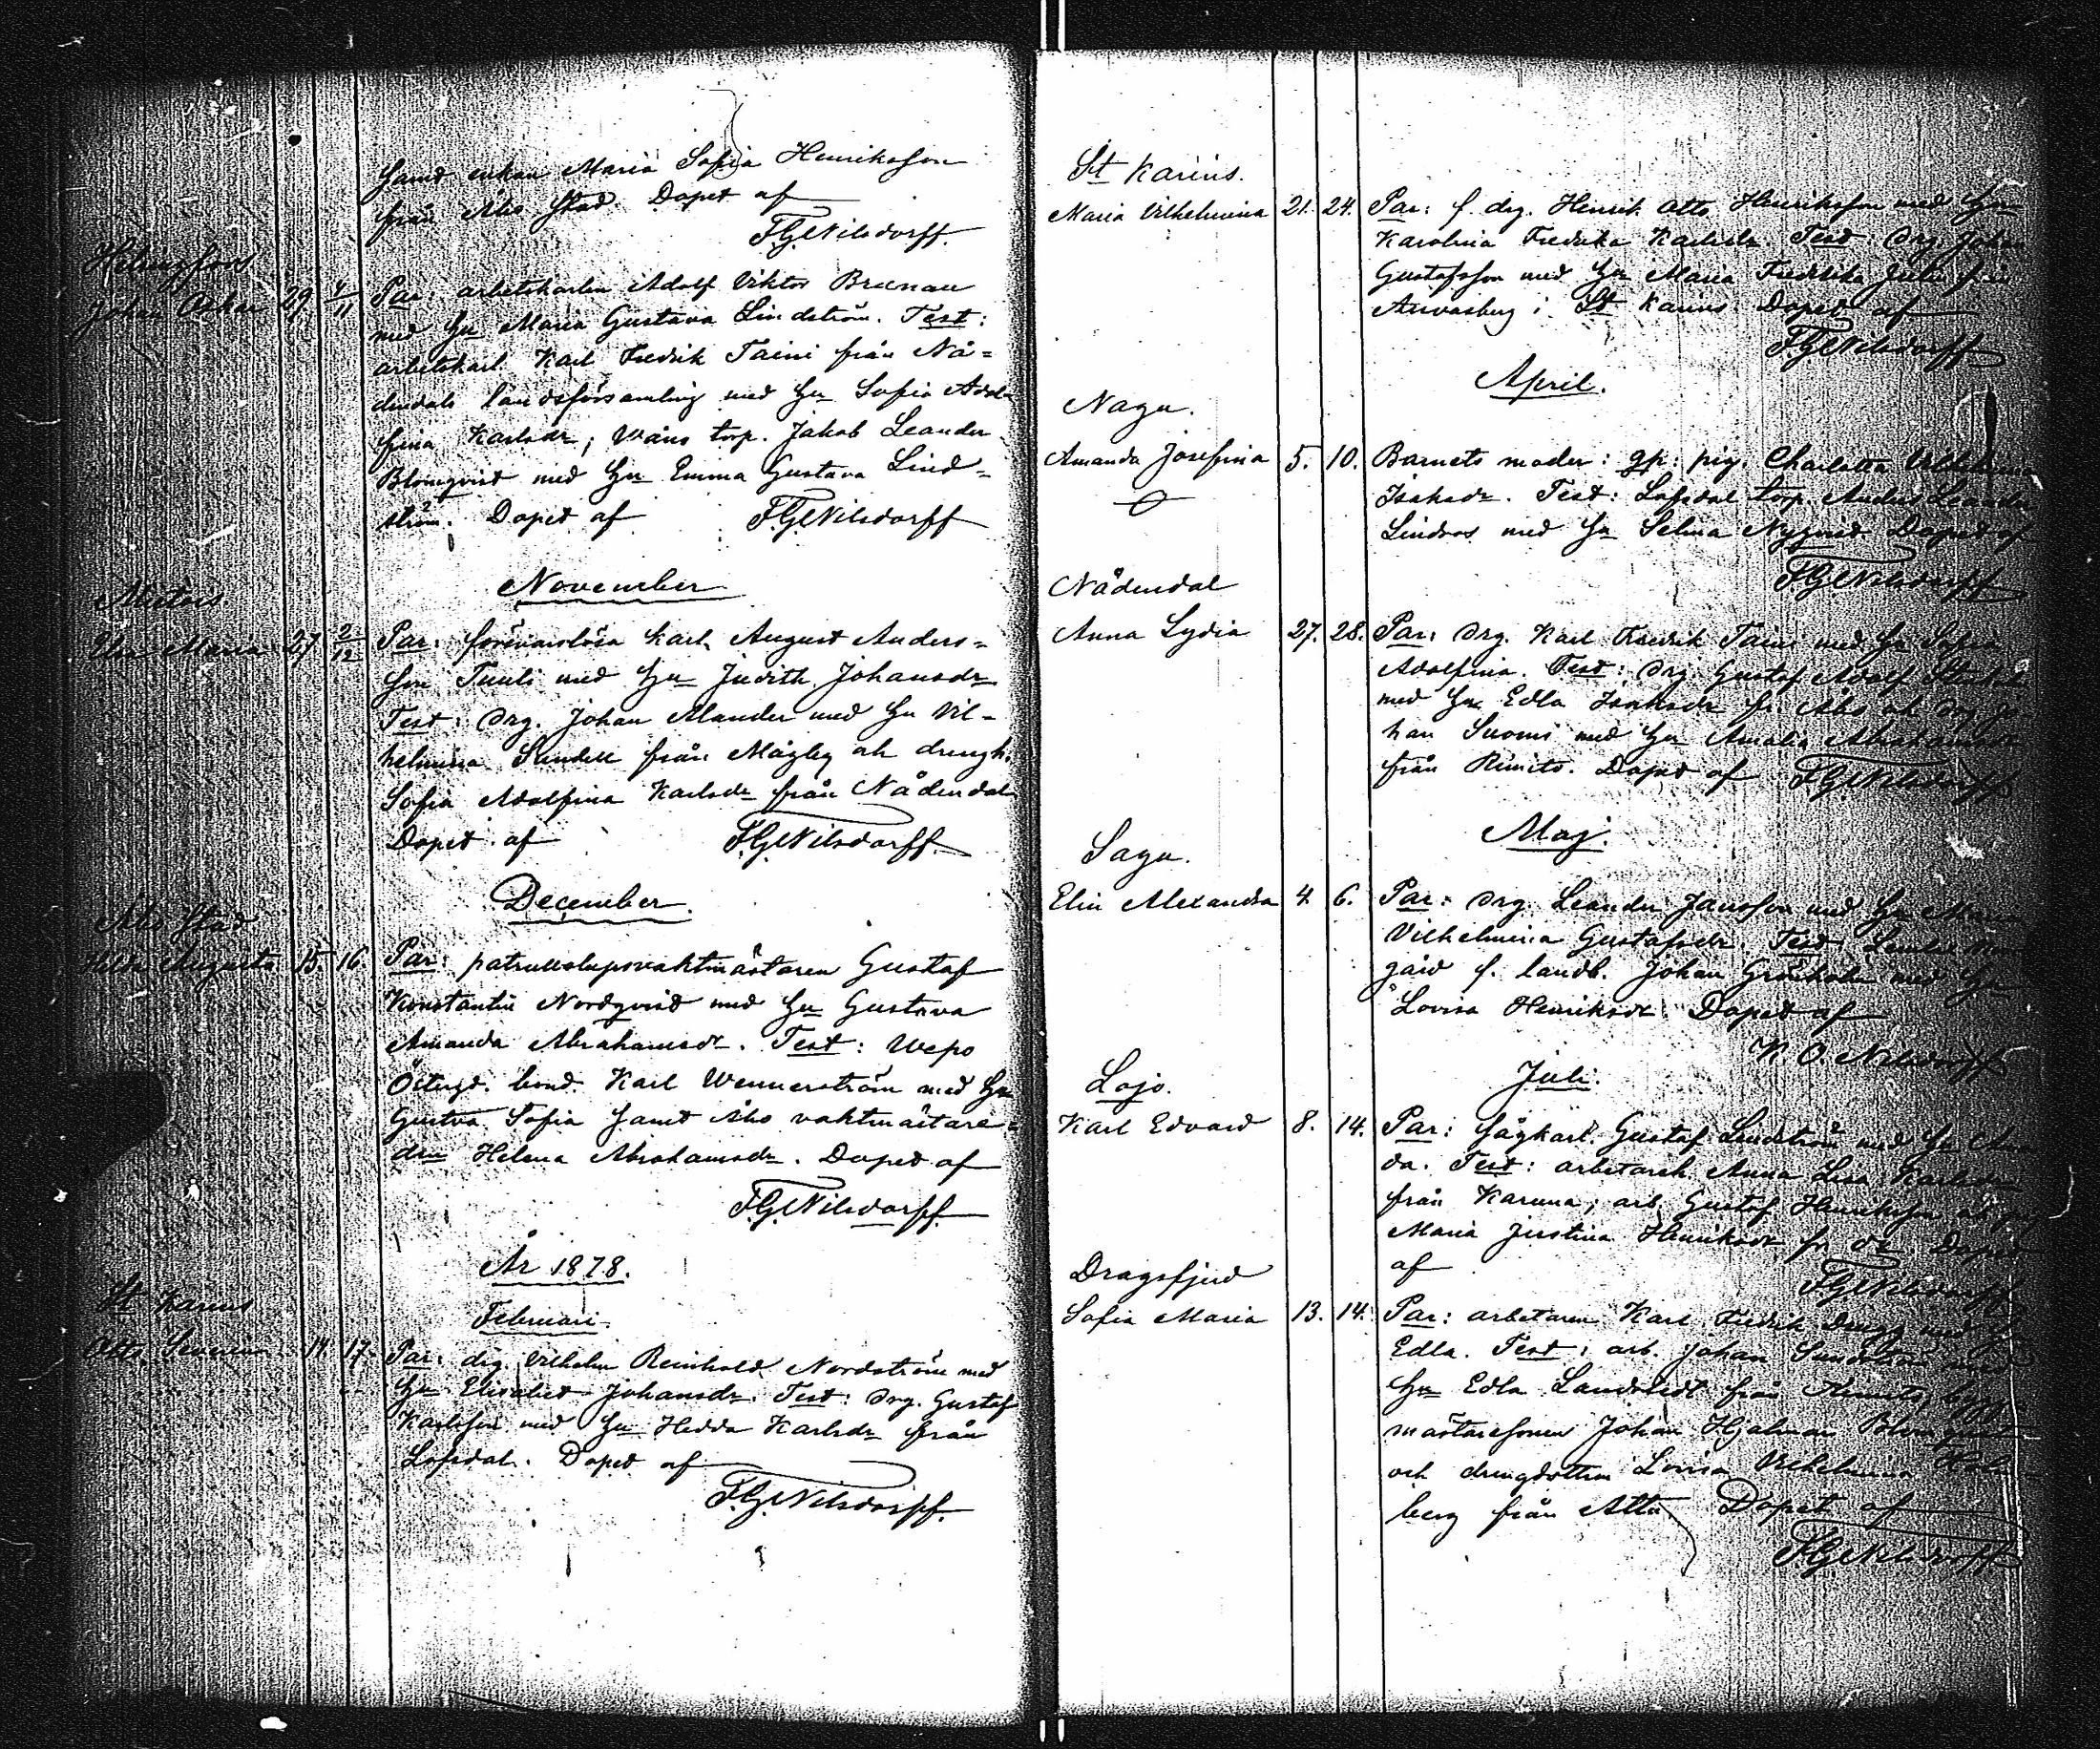 samt enkan Maria Sofia Henriksson
från Åbo stad. Döpet af
F.G. Nilsdorff.
Helsingfors
Johan Oskar 29. 4/11 Par: arbetskarlen Adolf Viktor Brunau
med Hu Maria Gustava Lindström. Test:
arbetskarl Karl Fredrik Taimi från Nå=
dendals landsförsamling med Hu Sofia Adol=
fina Karlsdr; Wäno torp. Jakob Leander
Blomqvist med Hu Emma Gustava Lind=
ström. Döpet af F.G. Nilsdorff
November
Elin Maria 27 2/12 Par: försvarslösa Karl August Anders=
son Tuuli med Hu Judith Johansdr
Test: drg. Johan Alander med Hu Vil=
helmina Sundell från Mågby ok drengk.
Sofia Adolfina Karlsdr från Nådendal
Döpet af F.G. Nilsdorff.
December.
Åbo Stad
Hilda Augusta 15. 16 Par: patrullslupsvaktmästaren Gustaf
Konstantin Nordqvist med Hu Gustava
Amanda Abrahamsdr. Test: Wepo
Östergd. bond. Karl Wennerström med Hu
Gustva Sofia samt Åbo vaktmästare=
drn Helena Abrahamsdr. Döpet af
F.G. Nilsdorff.
År 1878.
Februari.
St Karins
Otto Severin 14 17 Par: drg. Vilhelm Reinhold Nordström med
Hu Elisabet Johansdr. Test: drg. Gustaf
Karlsson med Hu Hedda Karlsdr från
Lofsdal. Döpet af
F.G. Nilsdorff.
St Karins.
Maria Vilhelmina 21. 24. Par: f. drg. Henrik Otto Henriksson med Hu
Karolina Fredrika Karlsdr. Test: drg Johan
Gustafsson med Hu Maria Fredrika
i St Karins. Döpet af
F.G. Nilsdorff
April.
Nagu.
Amanda Josefina 5. 10. Barnets moder: gp: pig. Charlotta Vilhelmina
Isaksdr. Test: Lofsdal torp. Anders Leander
Lindros med Hu Selma Nyqvist Döpet af
F.G. Nilsdorff
Nådendal
Anna Lydia 27. 28. Par: drg. Karl Fredrik Taimi med Hu Sofia
Adolfina. Test: drg. Gustaf Adolf
med Hu Edla Isaksdr fr. Åbo ok drg Jo
han Suomi med Hu Amalia Abrahamsdr
från Rimito. Döpet af F.G. Nilsdorff
Maj.
Sagu.
Elin Alexandra 4. 6. Par: drg. Leander Jansson med Hu Maria
Vilhelmina Gustafsdr. Test:
gård f. landb. Johan Grönholm med Hu
Lovisa Henriksdr. Döpet af
K. O. Nilsdorff
Juli.
Lojo.
Karl Edvard 8. 14. Par: sågkarl. Gustaf Lindström med Hu
da. Test: arbetarek. Anna Lisa Karlsdr
från Karuna; arb. Gustaf Henriksson ok
Maria Justina Henriksdr fr. Döpet
af F.G. Nilsdorff
Dragsfjerd
Sofia Maria 13. 14. Par: arbetaren Karl Fredrik med Hu
Edla. Test: arb. Johan Sundström med
Hu Edla Landstedt från Kimito,
mästaresonen Johan Hjalmar Blomqvist
och drengdottren Lovisa Vilhelmina Hol
berg från Attu. Döpet af
F.G. Nilsdorff